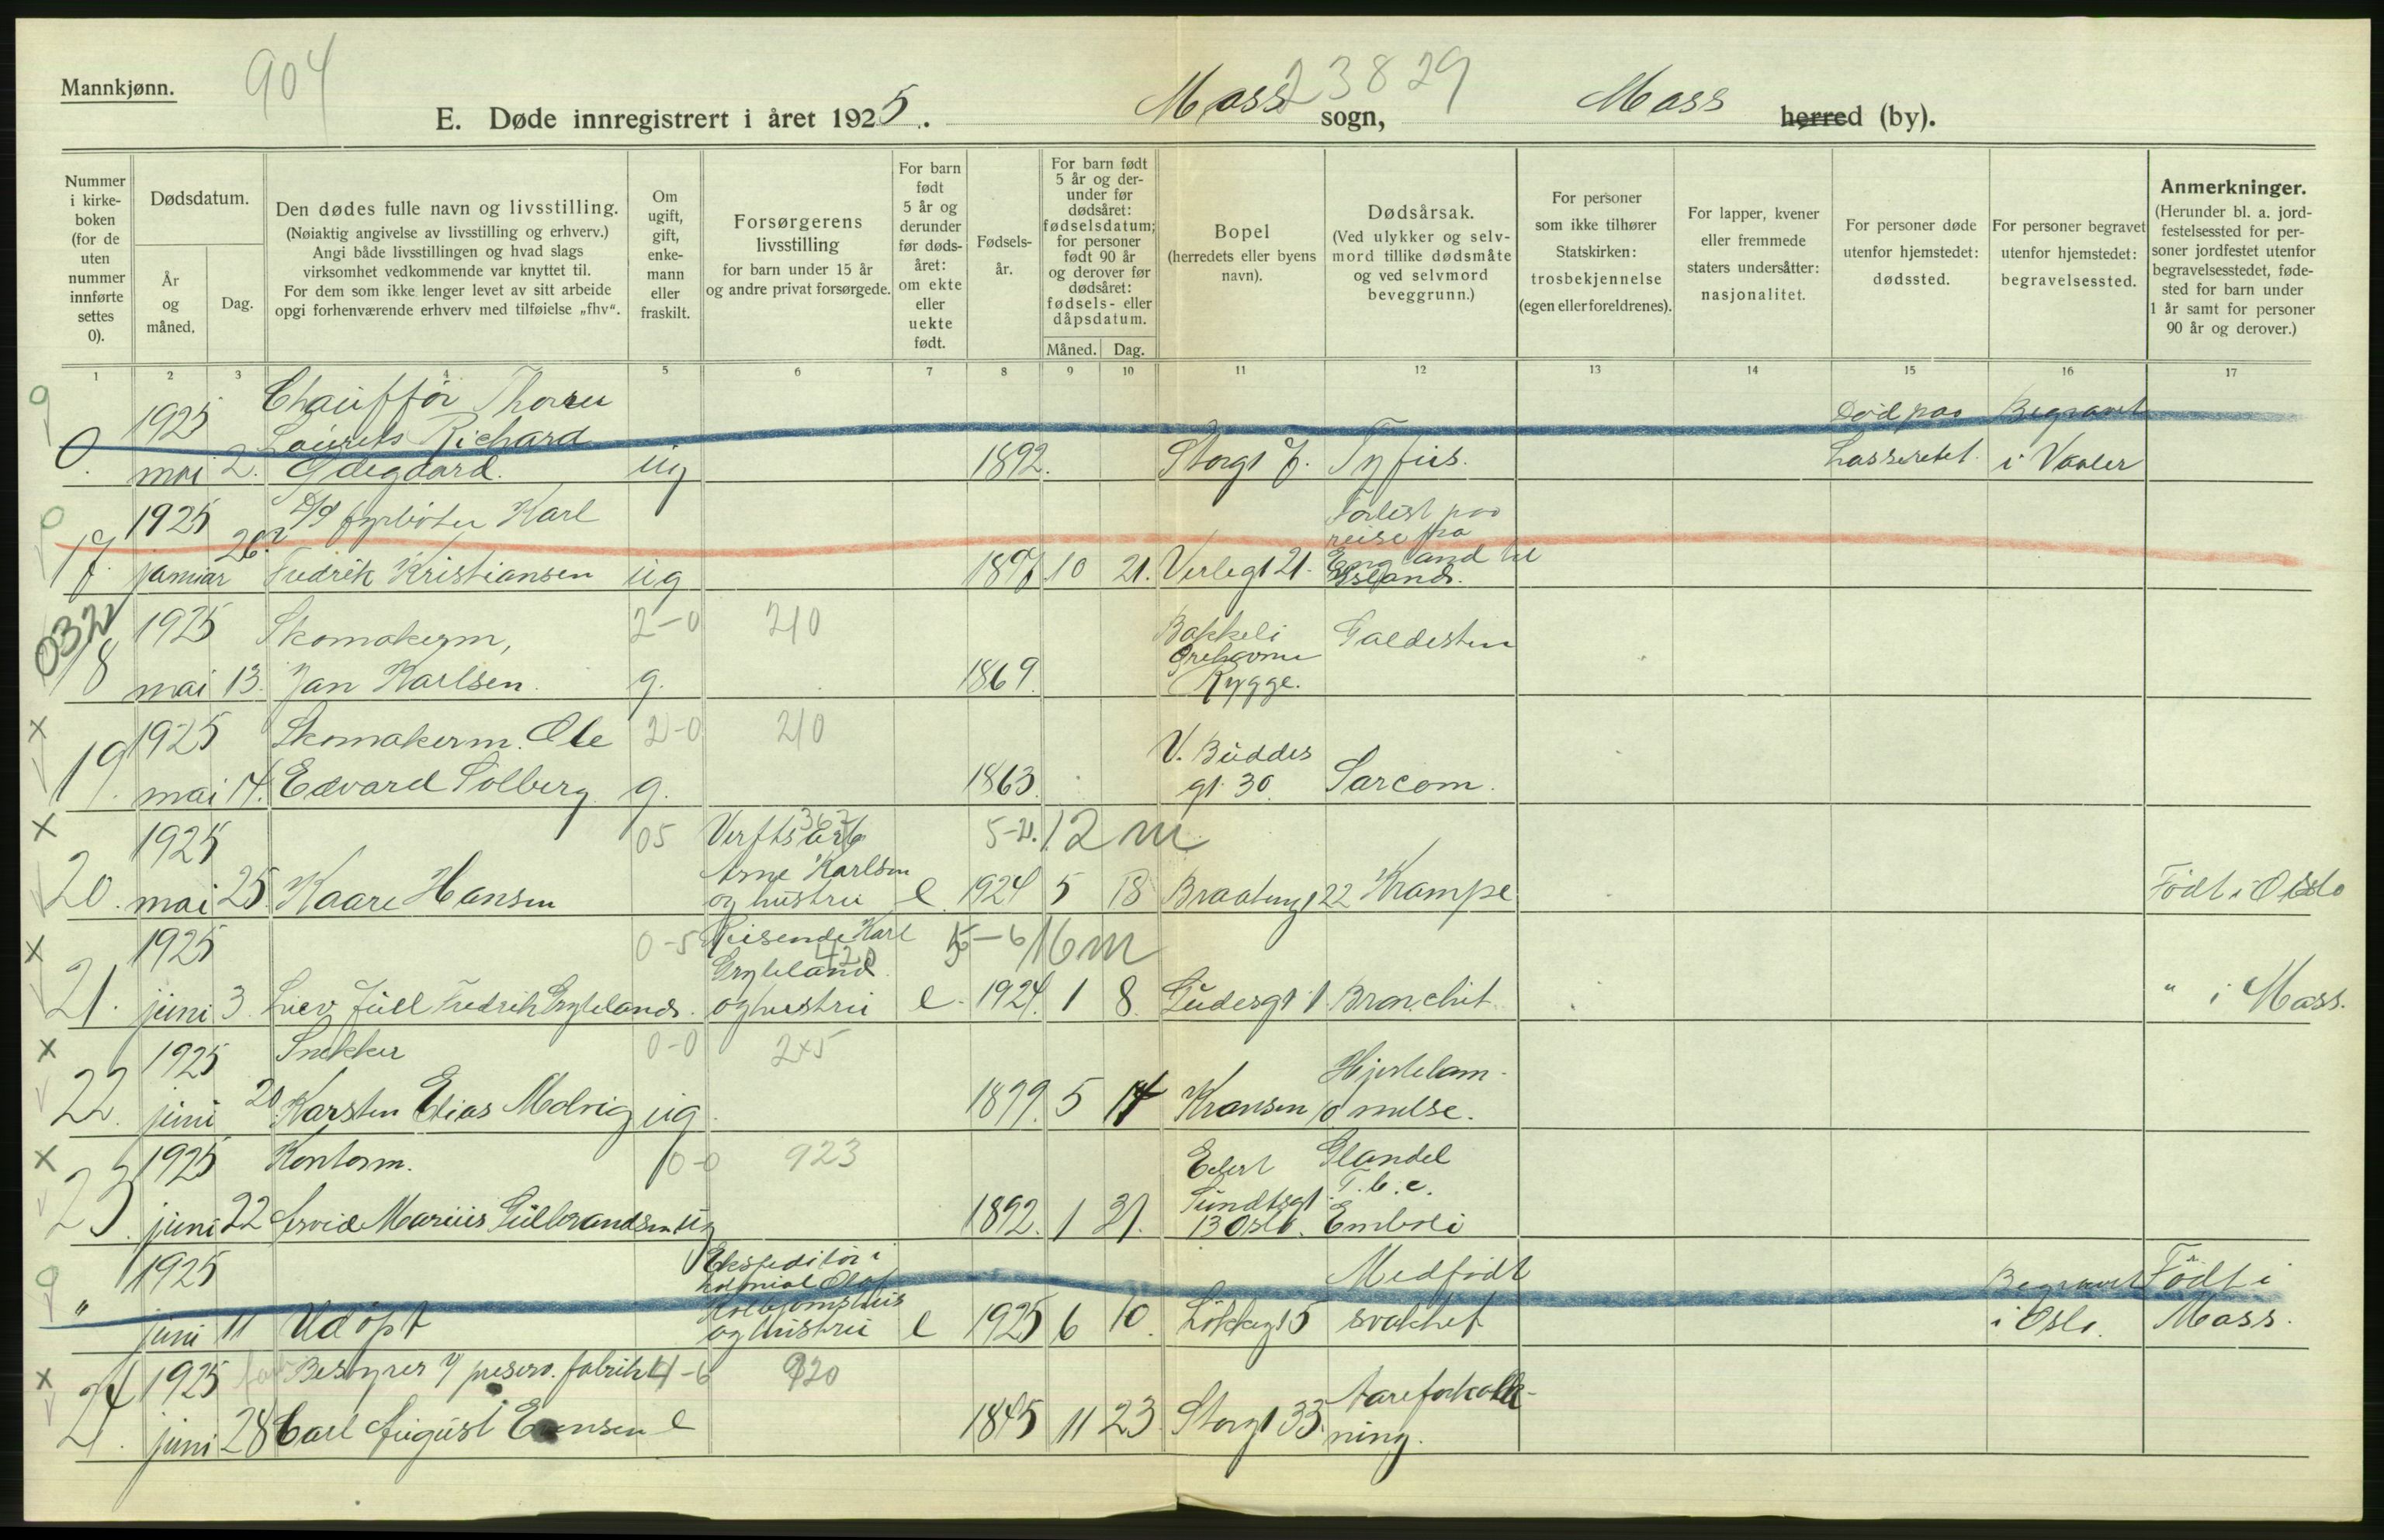 Mannkjønn.
904
E. Døde innregistrert i året 1925.
Moss sogn,
23829
Moss herred (by).
Nummer i kirke-boken (for de uten nummer innførte settes 0).
Dødsdatum.
År og måned.
Dag.
Den dødes fulle navn og livsstilling.
(Nøiaktig angivelse av livsstilling og erhverv.)
Angi både livsstillingen og hvad slags
virksomhet vedkommende var knyttet til.
For dem som ikke lenger levet av sitt arbeide
opgi forhenværende erhverv med tilføielse „fhv“.
Om ugift, gift, enke-mann eller fraskilt.
Forsørgerens livsstilling
for barn under 15 år
og andre privat forsørgede.
For barn født 5 år og derunder før døds-året: om ekte eller uekte født.
Fødsels-år.
For barn født 5 år og der-under før dødsåret: fødselsdatum; for personer født 90 år og derover før dødsåret: fødsels- eller dåpsdatum.
Måned.
Dag.
Bopel
(herredets eller byens navn).
Dødsårsak.
(Ved ulykker og selv-mord tillike dødsmåte og ved selvmord beveggrunn.)
For personer som ikke tilhører Statskirken: trosbekjennelse (egen eller foreldrenes).
For lapper, kvener eller fremmede staters undersåtter: nasjonalitet.
For personer døde utenfor hjemstedet: dødssted.
For personer begravet utenfor hjemstedet: begravelsessted.
Anmerkninger.
(Herunder bl. a. jord-festelsessted for per-soner jordfestet utenfor begravelsesstedet, føde-sted for barn under 1 år samt for personer 90 år og derover.)
1 2 3 4 5 6 7 8 9 10 11 12 13 14 15 16 17
9
1925 Chauffør Thorru Død paa Begravet
Laurits Richard
0. mai 2. Ødegaard. ug 1892. Storgt 7. Tyfus. Lasseretet. i Vaaler
0
1925 D/S fyrbøter Karl Forlist paa
reise fra
17. januar 26? Fredrik Kristiansen ug 1897 10 21. Verlegt 21. England til
Island.
0322
1925 Skomakerm, 2-0 210 Bakkeli Galdesten
Orehavna
18 mai 13. Jan Karlsen. g. 1869. Rygge.
x
1925 Skomakerm. Ole 2-0 210 V. Buddes
19. mai 14. Edvard Solberg g. 1863. gt. 30. Sarcom.
x
1925 05 Verftsarb 367 5-21. 12 m
Arne Karlsen
20. mai 25. Kaare Hansen og hustru e. 1924 5 18 Braatengt 22 Krampe Født i Oslo
x
1925 0-5 Reisende Karl 5-6 16 m
Gryteland. 420
21. juni 3. Liev Juell Fredrik Grytelands. og hustru e. 1924. 1 8. Gudesgt 1. Bronchit. " i Moss.
x
1925 Snekker 0-0 245 Hjertelam-
22. juni 20. Karsten Elias Molvig ug. 1899. 5 14 Kransen 10 melse.
x
1925 Kontorm. 0-0 923 Eilert Glandel
Sundtsgt. T.b.c.
23. juni 22 Arvid Marius Gulbrandsen ug 1892. 1 31. 13 Oslo. Emboli
9
1925 Ekspeditør i Medfødt Begravet Født i
kolonial Olaf
" juni 11 Udøpt og hustru e 1925 6 10. Løkkegt 5 svakhet i Oslo. Moss.
x
1925 Bestyrer v/ preserv. fabrik 4-6 920 Aareforkalk-
24. juni 28 Carl August Evensen e 1845 11 23 Storgt 33. ning.